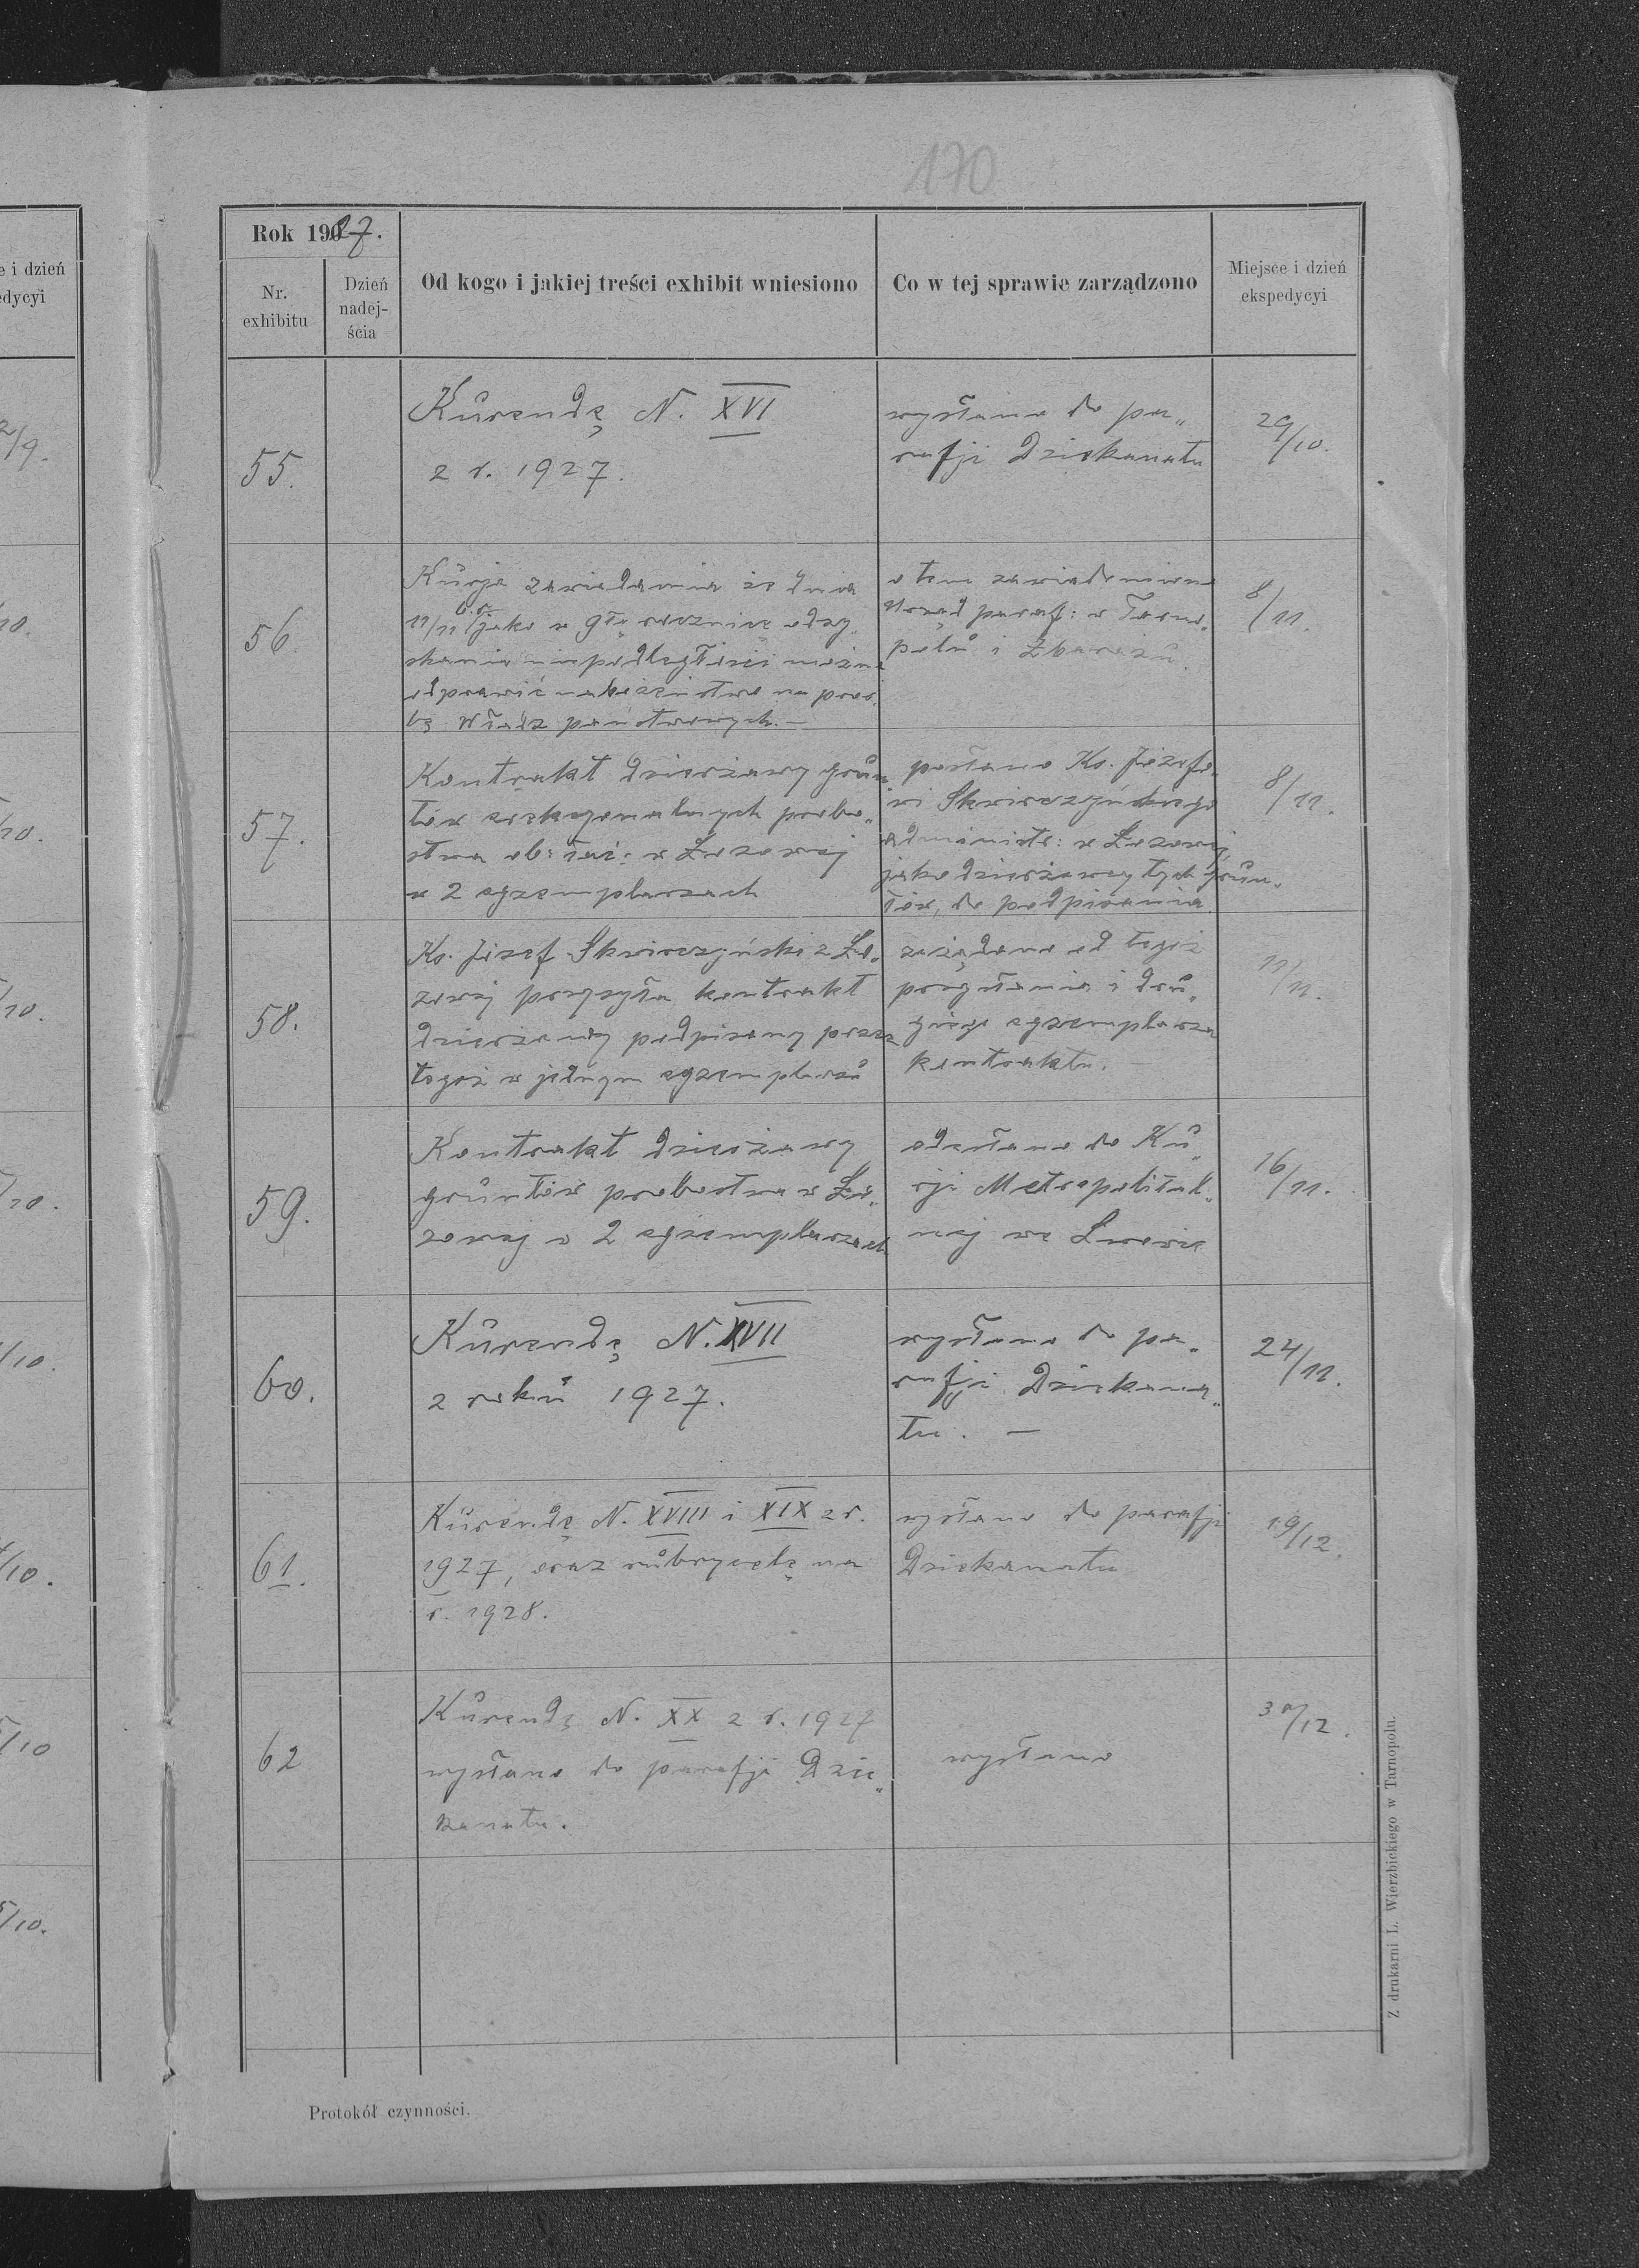 170
Rok 1927.
Nr. exhibitu
Dzień nadej-ścia
Od kogo i jakiej treści exhibit wniesiono
Co w tej sprawie zarządzono
Miejsce i dzień ekspedycyi
e i dzień
edycyi
55.
Kurendę N. XVI
z r. 1927.
wysłano do pa„
rafji Dziekanatu
29/10.
56.
Kurja zawiadamia że dnia
11/11 b.r. jako w 9tą rocznicę odzy„
skania niepodległości można
odprawić nabożeństwo na proś„
bę Władz państwowych. —
o tem zawiadomiono
Urząd paraf: w Tarno„
polu i Zbarażu.
8/11.
57.
Kontrakt dzierżawy grun„
tów erekcyonalnych probo„
stwa ob: łać: w Łozowej
w 2 egzemplarzach
posłano Ks. Józefo„
wi Skwirczyńskiego
administr: w Łozowej,
jako dzierżawcy tych grun„
tów, do podpisania
8/11.
58.
Ks. Józef Skwirczyński z Ło„
zowej przysyła kontrakt
dzierżawy podpisany przez
tegoż w jednym egzemplarzu
zażądano od tegoż
przysłania i dru„
giego egzemplarza
kontraktu. —
11/11.
59.
Kontrakt dzierżawy
gruntów probostwa w Ło„
zowej w 2 egzemplarzach
odesłano do Ku„
rji Metropolital„
nej we Lwowie
16/11.
60.
Kurendę N. XVII
z roku 1927.
wysłano do pa„
rafji Dziekana„
tu. —
24/11.
61.
Kurendę N. XVIII i XIX z r.
1927, oraz rubrycelę na
r. 1928.
wysłano do parafji
Dziekanatu
19/12.
62
Kurendę N. XX z r. 1927
wysłano do parafji Dzie„
kanatu.
wysłano
30/12.
Protokół czynności.
Z drukarni L. Wierzbickiego w Tarnopolu.